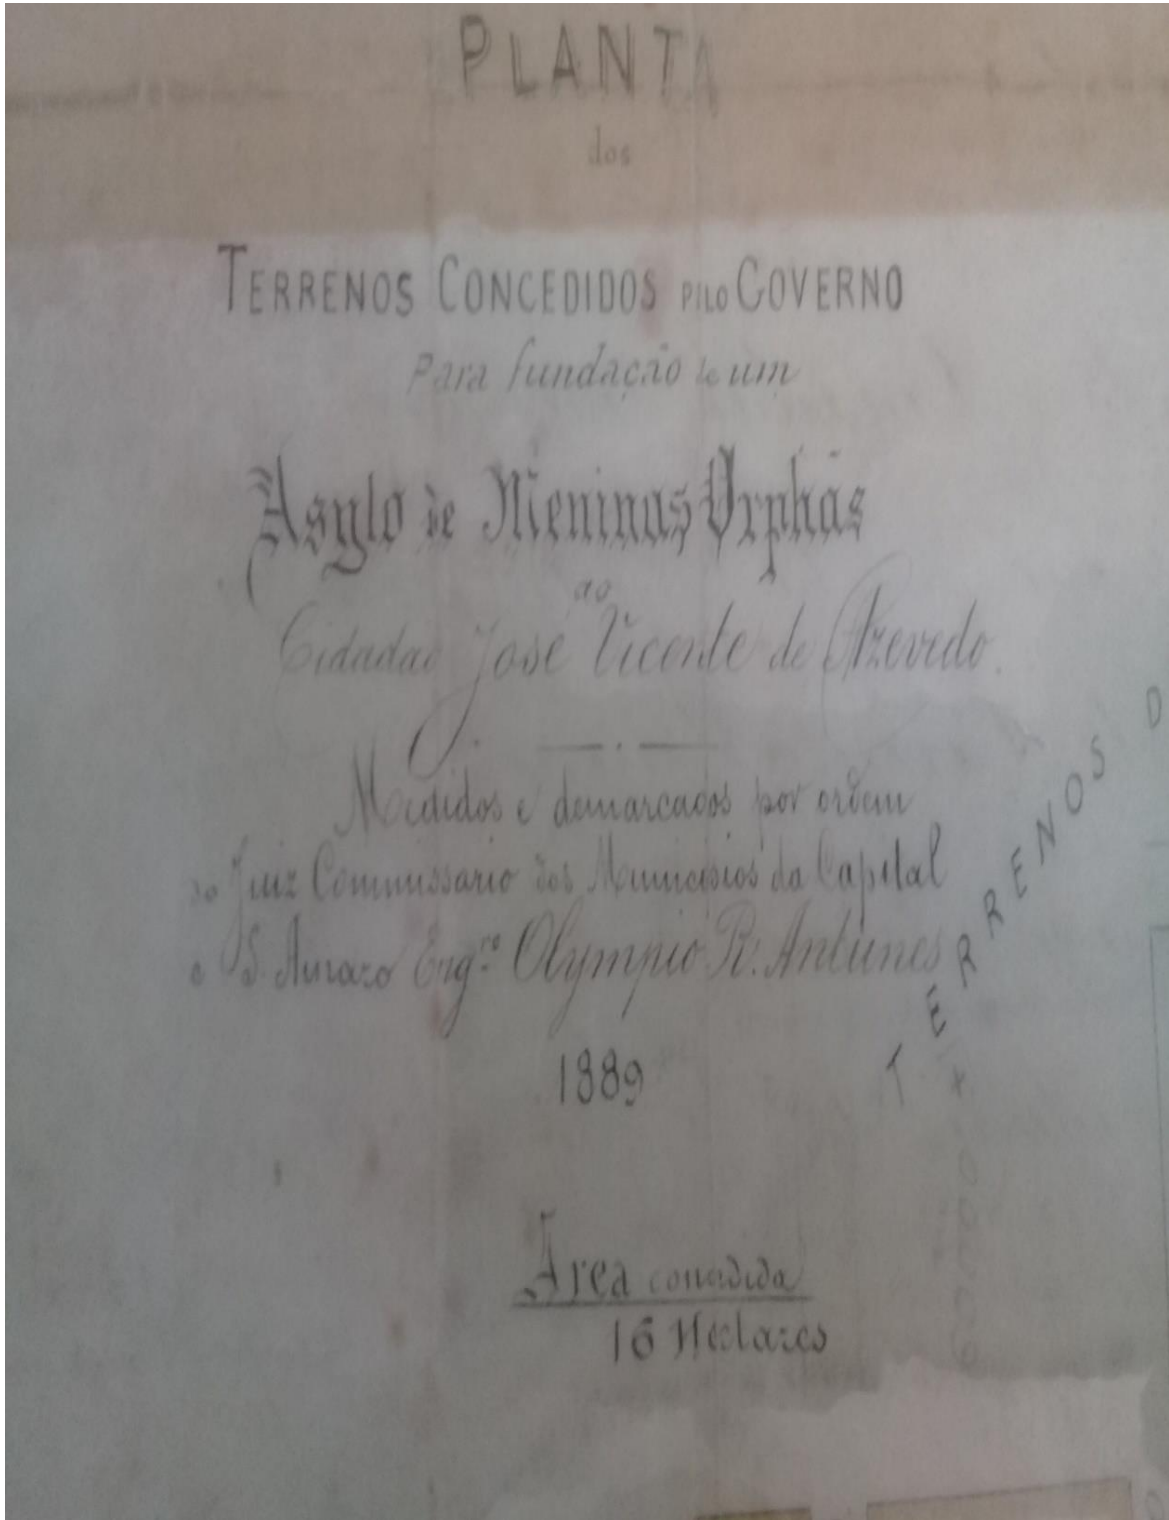 PLANTA
dos
TERRENOS CONCEDIDOS PELO GOVERNO
Para fundação de um
Asylo de Meninas Orphãs
ao
Cidadão José Vicente de Azevedo.
Medidos e demarcados por ordem
do Juiz Commissario dos Municipios da Capital
e S. Amaro Engro. Olympio R. Antunes
1889
Área concedida
16 Hectares
TERRENOS D